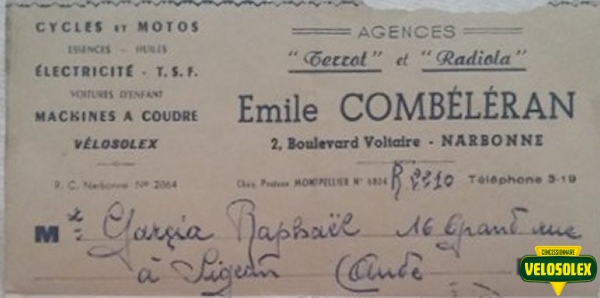 CYCLES ET MOTOS
ESSENCES - HUILES
ÉLECTRICITÉ - T.S.F.
VOITURES D'ENFANT
MACHINES A COUDRE
VÉLOSOLEX
R. C. Narbonne Nº 2864
AGENCES
"Terrot" et "Radiola"
Emile COMBÉLÉRAN
2, Boulevard Voltaire - NARBONNE
Chèq. Postaux MONTPELLIER Nº 6804 Téléphone 3-19
M Garçia Raphaël 16 Grand rue
à Sigean (Aude
CONCESSIONNAIRE
VELOSOLEX